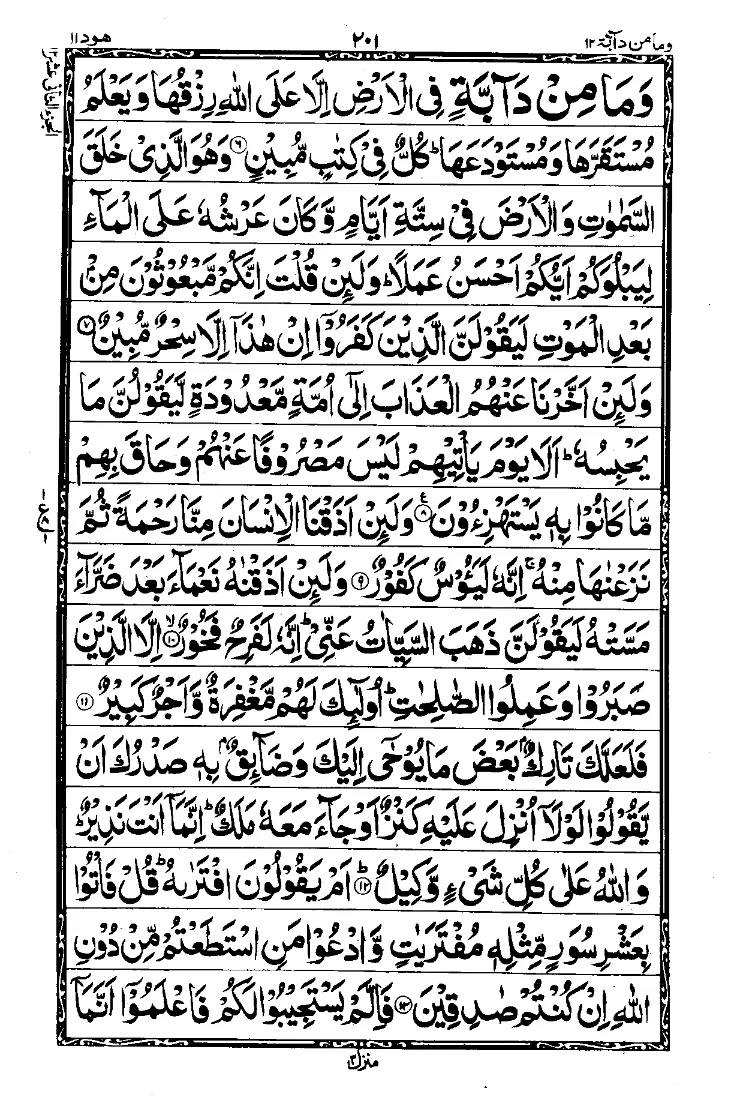 ومامن دآبة ١٢ ٢٠١ هود ١١
الجزء الثانی عشر ١٢
وَمَا مِنْ دَآبَّةٍ فِي الْاَرْضِ اِلَّا عَلَى اللهِ رِزْقُهَا وَيَعْلَمُ
مُسْتَقَرَّهَا وَمُسْتَوْدَعَهَا ؕ كُلٌّ فِيْ كِتٰبٍ مُّبِيْنٍ ۝٦ وَهُوَ الَّذِيْ خَلَقَ
السَّمٰوٰتِ وَالْاَرْضَ فِيْ سِتَّةِ اَيَّامٍ وَّكَانَ عَرْشُهٗ عَلَى الْمَآءِ
لِيَبْلُوَكُمْ اَيُّكُمْ اَحْسَنُ عَمَلًا ؕ وَلَئِنْ قُلْتَ اِنَّكُمْ مَّبْعُوْثُوْنَ مِنْۢ
بَعْدِ الْمَوْتِ لَيَقُوْلَنَّ الَّذِيْنَ كَفَرُوْٓا اِنْ هٰذَآ اِلَّا سِحْرٌ مُّبِيْنٌ ۝٧
وَلَئِنْ اَخَّرْنَا عَنْهُمُ الْعَذَابَ اِلٰٓى اُمَّةٍ مَّعْدُوْدَةٍ لَّيَقُوْلُنَّ مَا
يَحْبِسُهٗ ؕ اَلَا يَوْمَ يَاْتِيْهِمْ لَيْسَ مَصْرُوْفًا عَنْهُمْ وَحَاقَ بِهِمْ
مَّا كَانُوْا بِهٖ يَسْتَهْزِءُوْنَ ۝٨ ع وَلَئِنْ اَذَقْنَا الْاِنْسَانَ مِنَّا رَحْمَةً ثُمَّ
نَزَعْنٰهَا مِنْهُ ۚ اِنَّهٗ لَيَـُٔوْسٌ كَفُوْرٌ ۝٩ وَلَئِنْ اَذَقْنٰهُ نَعْمَآءَ بَعْدَ ضَرَّآءَ
مَسَّتْهُ لَيَقُوْلَنَّ ذَهَبَ السَّيِّاٰتُ عَنِّيْ ؕ اِنَّهٗ لَفَرِحٌ فَخُوْرٌ ۝١٠ۙ اِلَّا الَّذِيْنَ
صَبَرُوْا وَعَمِلُوا الصّٰلِحٰتِ ؕ اُولٰٓئِكَ لَهُمْ مَّغْفِرَةٌ وَّاَجْرٌ كَبِيْرٌ ۝١١
فَلَعَلَّكَ تَارِكٌۢ بَعْضَ مَا يُوْحٰٓى اِلَيْكَ وَضَآئِقٌۢ بِهٖ صَدْرُكَ اَنْ
يَّقُوْلُوْا لَوْلَآ اُنْزِلَ عَلَيْهِ كَنْزٌ اَوْ جَآءَ مَعَهٗ مَلَكٌ ؕ اِنَّمَآ اَنْتَ نَذِيْرٌ ؕ
وَاللهُ عَلٰى كُلِّ شَيْءٍ وَّكِيْلٌ ۝١٢ؕ اَمْ يَقُوْلُوْنَ افْتَرٰىهُ ؕ قُلْ فَاْتُوْا
بِعَشْرِ سُوَرٍ مِّثْلِهٖ مُفْتَرَيٰتٍ وَّادْعُوْا مَنِ اسْتَطَعْتُمْ مِّنْ دُوْنِ
اللهِ اِنْ كُنْتُمْ صٰدِقِيْنَ ۝١٣ فَاِلَّمْ يَسْتَجِيْبُوْا لَكُمْ فَاعْلَمُوْٓا اَنَّمَآ
منزل ٣